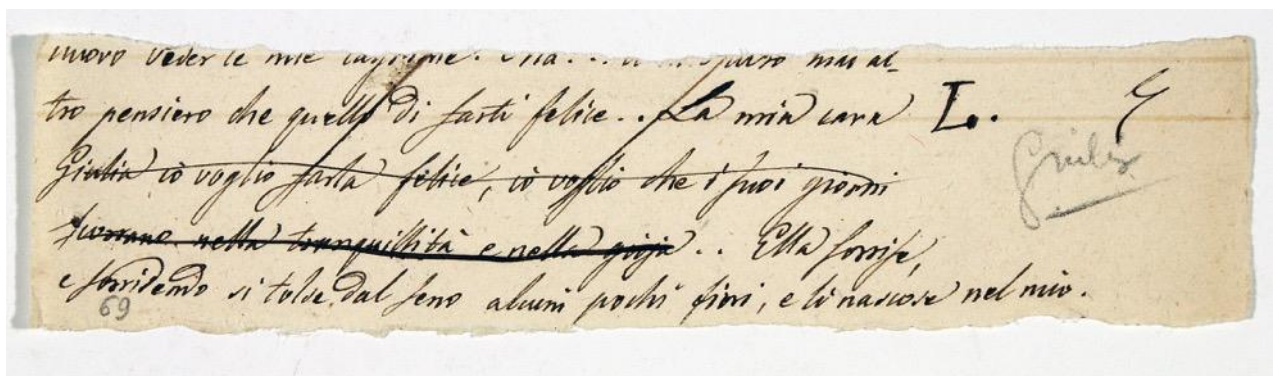 nuovo veder le mie lagrime. Ma . . . mai al-
tro pensiero che quello di farti felice . . La mia cara L.
Giulia io voglio farla felice, io voglio che i suoi giorni
scorrano nella tranquillità e nella gioja . . Ella sorrise,
e sorridendo si tolse dal seno alcuni pochi fiori, e li nascose nel mio.
69